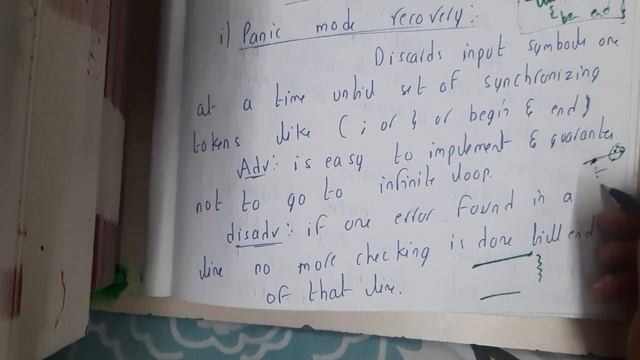 & be end }
i) Panic mode recovery :
Discards input symbols one
at a time until set of synchronizing
tokens like ( ; or } or begin & end )
Adv : is easy to implement & guarantee
not to go to infinite loop.
disadv : if one error found in a
line no more checking is done till end
of that line.